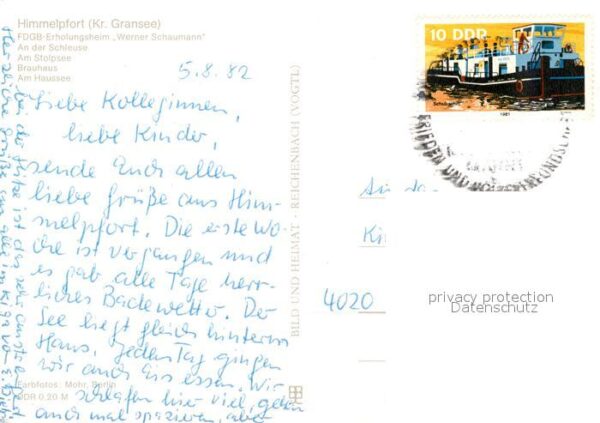 Himmelpfort (Kr. Gransee)
FDGB-Erholungsheim „Werner Schaumann"
An der Schleuse
Am Stolpsee
Brauhaus
Am Haussee
5.8.82
Liebe Kolleginnen,
liebe Kinder,
sende Euch allen
liebe Grüße aus Him-
melpfort. Die erste Wo-
che ist vergangen und
es gab alle Tage herr-
liches Badewetter. Der
See liegt gleich hinterm
Haus. Jeden Tag gingen
wir auch Eis essen. Wir
schlafen hier viel, gehen
auch mal spazieren, aber
bei der Hitze ist das sehr
Herzliche Grüße
Farbfotos: Mohr, Berlin
DDR 0,20 M
BILD UND HEIMAT · REICHENBACH (VOGTL)
10 DDR
Schubschiff
1981
FRIEDEN UND
An
Ki
4020
privacy protection
Datenschutz